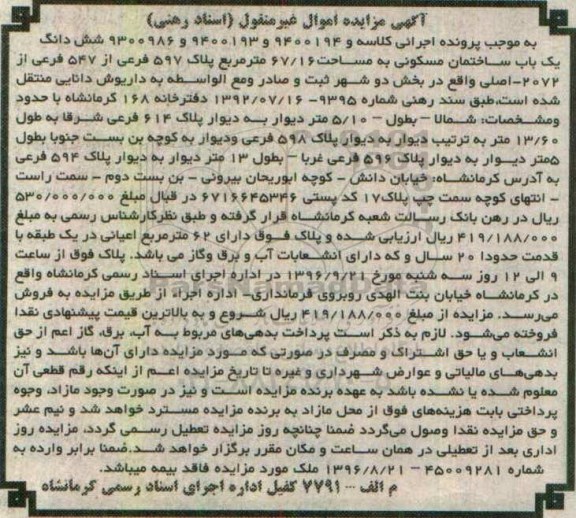 آگهی مزایده اموال غیرمنقول (اسناد رهنی)
به موجب پرونده اجرائی کلاسه و ۹۴۰۰۱۹۴ و ۹۴۰۰۱۹۳ و ۹۳۰۰۹۸۶ شش دانگ
یک باب ساختمان مسکونی به مساحت ۶۷/۱۶ مترمربع پلاک ۵۹۷ فرعی از ۵۴۷ فرعی از
۲۰۷۲-اصلی واقع در بخش دو شهر ثبت و صادر ومع الواسطه به داریوش دانایی منتقل
شده است،طبق سند رهنی شماره ۹۳۹۵- ۱۳۹۲/۰۷/۱۶ دفترخانه ۱۶۸ کرمانشاه با حدود
ومشخصات: شمالا – بطول – ۵/۱۰ متر دیوار به دیوار پلاک ۶۱۴ فرعی شرقا به طول
۱۳/۶۰ متر به ترتیب دیوار به دیوار پلاک ۵۹۸ فرعی ودیوار به کوچه بن بست جنوبا بطول
۵متر دیوار به دیوار پلاک ۵۹۶ فرعی غربا – بطول ۱۳ متر دیوار به دیوار پلاک ۵۹۴ فرعی
به آدرس کرمانشاه: خیابان دانش - کوچه ابوریحان بیرونی - بن بست دوم - سمت راست
- انتهای کوچه سمت چپ پلاک۱۷ کد پستی ۶۷۱۶۶۴۵۳۴۶ در قبال مبلغ ۵۳۰/۰۰۰/۰۰۰
ریال در رهن بانک رسالت شعبه کرمانشاه قرار گرفته و طبق نظرکارشناس رسمی به مبلغ
۴۱۹/۱۸۸/۰۰۰ ریال ارزیابی شده و پلاک فوق دارای ۶۲ مترمربع اعیانی در یک طبقه با
قدمت حدودا ۲۰ سال و که دارای انشعابات آب و برق وگاز می باشد. پلاک فوق از ساعت
۹ الی ۱۲ روز سه شنبه مورخ ۱۳۹۶/۹/۲۱ در اداره اجرای اسناد رسمی کرمانشاه واقع
در کرمانشاه خیابان بنت الهدی روبروی فرمانداری- اداره اجراء از طریق مزایده به فروش
می‌رسد. مزایده از مبلغ ۴۱۹/۱۸۸/۰۰۰ ریال شروع و به بالاترین قیمت پیشنهادی نقدا
فروخته می‌شود. لازم به ذکر است پرداخت بدهی‌های مربوط به آب، برق، گاز اعم از حق
انشعاب و یا حق اشتراک و مصرف در صورتی که مورد مزایده دارای آن‌ها باشد و نیز
بدهی‌های مالیاتی و عوارض شهرداری و غیره تا تاریخ مزایده اعم از اینکه رقم قطعی آن
معلوم شده یا نشده باشد به عهده برنده مزایده است و نیز در صورت وجود مازاد، وجوه
پرداختی بابت هزینه‌های فوق از محل مازاد به برنده مزایده مسترد خواهد شد و نیم عشر
و حق مزایده نقدا وصول می‌گردد ضمنا چنانچه روز مزایده تعطیل رسمی گردد، مزایده روز
اداری بعد از تعطیلی در همان ساعت و مکان مقرر برگزار خواهد شد.ضمنا برابر وارده به
شماره ۴۵۰۰۹۲۸۱ – ۱۳۹۶/۸/۲۱ ملک مورد مزایده فاقد بیمه میباشد.
م الف ... ۷۷۹۱ کفیل اداره اجرای اسناد رسمی کرمانشاه